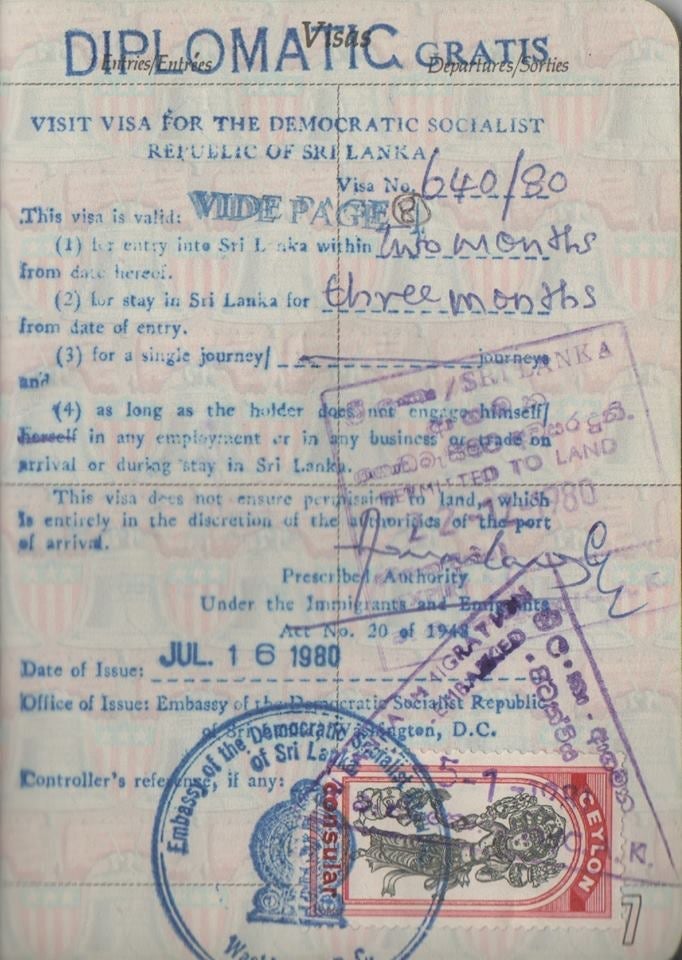 Visas
DIPLOMATIC GRATIS
Entries/Entrées Departures/Sorties
VISIT VISA FOR THE DEMOCRATIC SOCIALIST
REPUBLIC OF SRI LANKA
Visa No. 640/80
This visa is valid: VIDE PAGE 8
(1) for entry into Sri Lanka within two months
from date hereof.
(2) for stay in Sri Lanka for three months
from date of entry.
(3) for a single journey/ journeys
and
(4) as long as the holder does not engage himself/
herself in any employment or in any business or trade on
arrival or during stay in Sri Lanka.
This visa does not ensure permission to land, which
is entirely in the discretion of the authorities of the port
of arrival.
/ SRI LANKA
PERMITTED TO LAND
1980
Prescribed Authority
Under the Immigrants and Emigrants
Act No. 20 of 1948
Date of Issue: JUL. 16 1980
Office of Issue: Embassy of the Democratic Socialist Republic
of Sri Lanka, Washington, D.C.
Controller's reference, if any:
Embassy of the Democratic Socialist
of Sri Lanka
Consular
CEYLON
EMBARKED
7